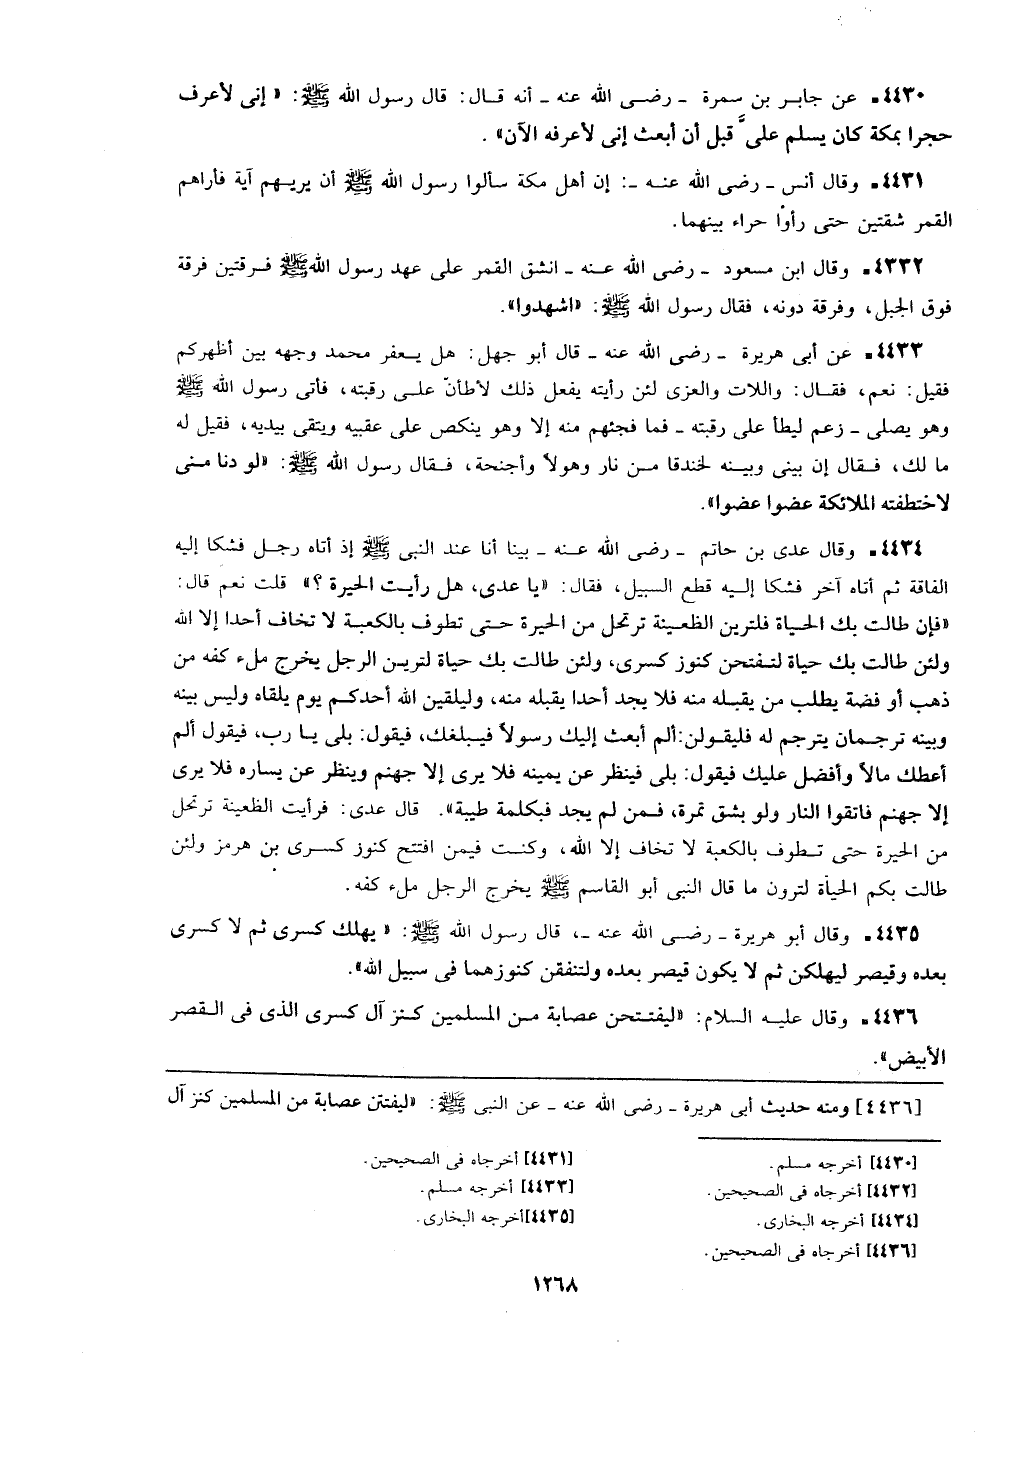 ٤٤٣٠. عن جابر بن سمرة ـ رضى الله عنه ـ أنه قال: قال رسول الله ﷺ: « إنى لأعرف
حجرا بمكة كان يسلم علىَّ قبل أن أبعث إنى لأعرفه الآن» .
٤٤٣١. وقال أنس ـ رضى الله عنه ـ: إن أهل مكة سألوا رسول الله ﷺ أن يريهم آية فأراهم
القمر شقتين حتى رأوْا حراء بينهما.
٤٣٣٢. وقال ابن مسعود ـ رضى الله عنه ـ انشق القمر على عهد رسول اللهﷺ فرقتين فرقة
فوق الجبل، وفرقة دونه، فقال رسول الله ﷺ: «اشهدوا».
٤٤٣٣. عن أبى هريرة ـ رضى الله عنه ـ قال أبو جهل: هل يعفر محمد وجهه بين أظهركم
فقيل: نعم، فقال: واللات والعزى لئن رأيته يفعل ذلك لأطأنّ على رقبته، فأتى رسول الله ﷺ
وهو يصلى ـ زعم ليطأ على رقبته ـ فما فجئهم منه إلا وهو ينكص على عقبيه ويتقى بيديه، فقيل له
ما لك، فقال إن بينى وبينه لخندقا من نار وهولاً وأجنحة، فقال رسول الله ﷺ: «لو دنا منى
لاختطفته الملائكة عضوا عضوا».
٤٤٣٤. وقال عدى بن حاتم ـ رضى الله عنه ـ بينا أنا عند النبى ﷺ إذ أتاه رجل فشكا إليه
الفاقة ثم أتاه آخر فشكا إليه قطع السبيل، فقال: «يا عدى، هل رأيت الحيرة ؟» قلت نعم قال:
«فإن طالت بك الحياة فلترين الظعينة ترتحل من الحيرة حتى تطوف بالكعبة لا تخاف أحدا إلا الله
ولئن طالت بك حياة لتفتحن كنوز كسرى، ولئن طالت بك حياة لترين الرجل يخرج ملء كفه من
ذهب أو فضة يطلب من يقبله منه فلا يجد أحدا يقبله منه، وليلقين الله أحدكم يوم يلقاه وليس بينه
وبينه ترجمان يترجم له فليقولن:ألم أبعث إليك رسولاً فيبلغك، فيقول: بلى يا رب، فيقول ألم
أعطك مالاً وأفضل عليك فيقول: بلى فينظر عن يمينه فلا يرى إلا جهنم وينظر عن يساره فلا يرى
إلا جهنم فاتقوا النار ولو بشق تمرة، فمن لم يجد فبكلمة طيبة». قال عدى: فرأيت الظعينة ترتحل
من الحيرة حتى تطوف بالكعبة لا تخاف إلا الله، وكنت فيمن افتتح كنوز كسرى بن هرمز ولئن
طالت بكم الحياة لترون ما قال النبى أبو القاسم ﷺ يخرج الرجل ملء كفه.
٤٤٣٥. وقال أبو هريرة ـ رضى الله عنه ـ، قال رسول الله ﷺ: « يهلك كسرى ثم لا كسرى
بعده وقيصر ليهلكن ثم لا يكون قيصر بعده ولتنفقن كنوزهما فى سبيل الله».
٤٤٣٦. وقال عليه السلام: «ليفتتحن عصابة من المسلمين كنز آل كسرى الذى فى القصر
الأبيض».
[٤٤٣٦] ومنه حديث أبى هريرة ـ رضى الله عنه ـ عن النبى ﷺ: «ليفتتن عصابة من المسلمين كنز آل
[٤٤٣٠] أخرجه مسلم. [٤٤٣١] أخرجاه فى الصحيحين.
[٤٤٣٢] أخرجاه فى الصحيحين. [٤٤٣٣] أخرجه مسلم.
[٤٤٣٤] أخرجه البخارى. [٤٤٣٥]أخرجه البخارى.
[٤٤٣٦] أخرجاه فى الصحيحين.
١٢٦٨